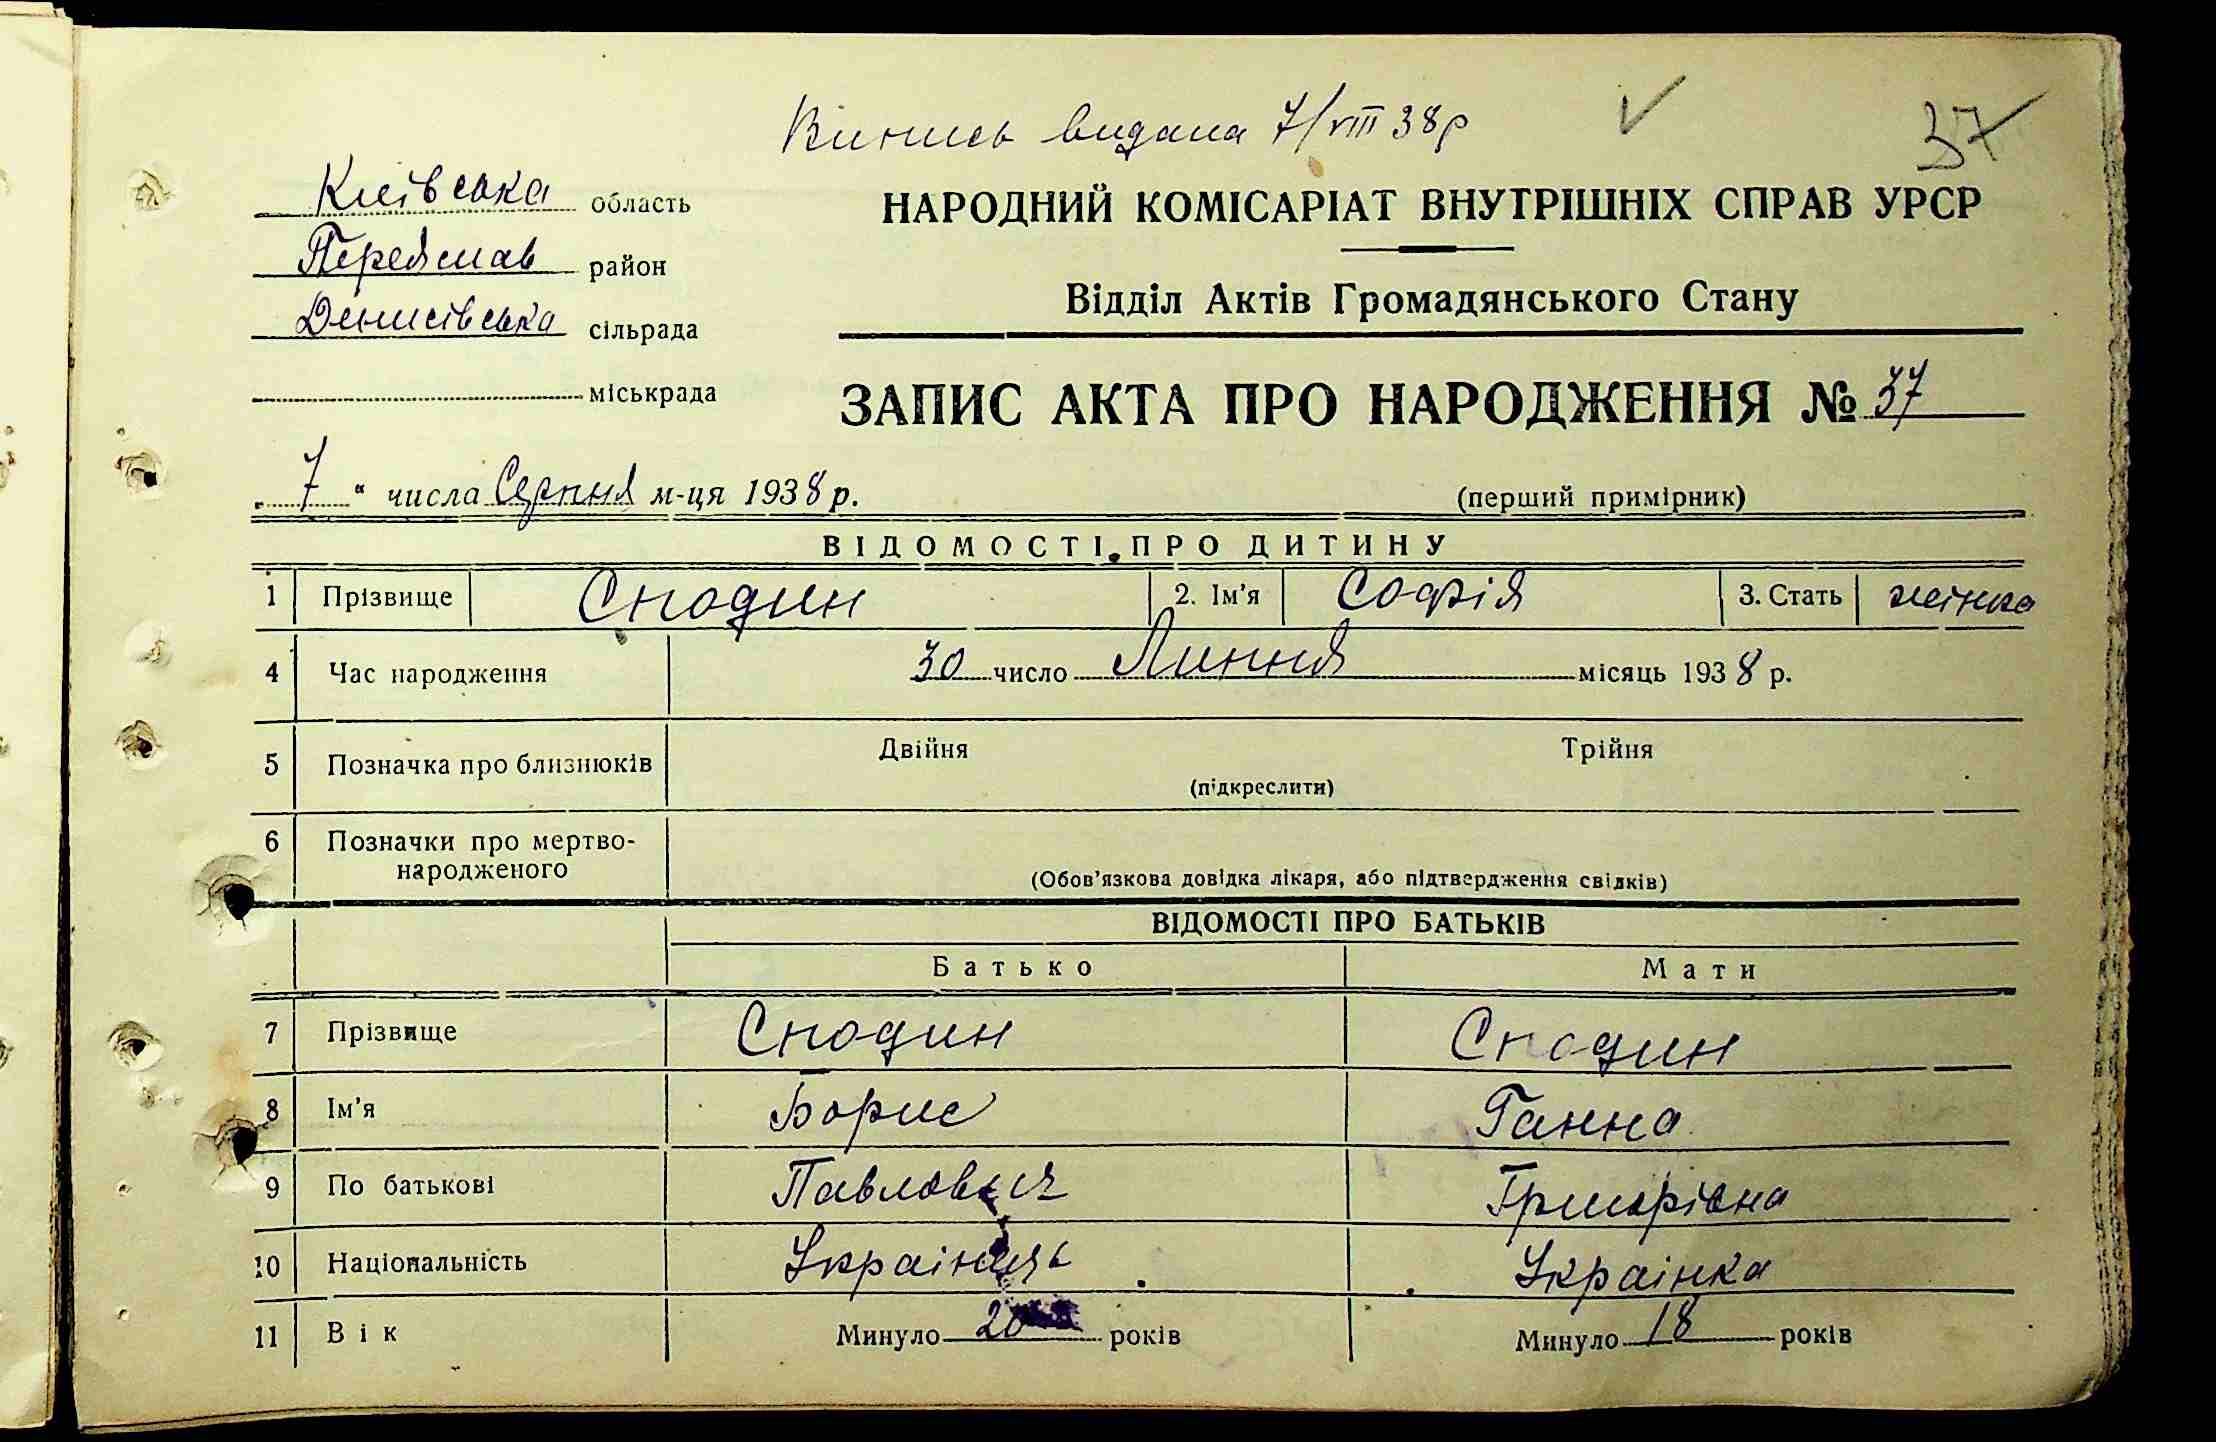 Випись видана 7/VIII 38р
37
Київська область
НАРОДНИЙ КОМІСАРІАТ ВНУТРІШНІХ СПРАВ УРСР
Переяслав район
Відділ Актів Громадянського Стану
Денисівська сільрада
міськрада
ЗАПИС АКТА ПРО НАРОДЖЕННЯ № 37
„ 7 " числа Серпня м-ця 1938 р.
(перший примірник)
ВІДОМОСТІ ПРО ДИТИНУ
1 Прізвище Сподин 2. Ім'я Софія 3. Стать жінка
4 Час народження 30 число Липня місяць 1938 р.
5 Позначка про близнюків Двійня Трійня
(підкреслити)
6 Позначки про мертво-
народженого
(Обов'язкова довідка лікаря, або підтвердження свідків)
ВІДОМОСТІ ПРО БАТЬКІВ
Батько Мати
7 Прізвище Сподин Сподин
8 Ім'я Борис Ганна
9 По батькові Павлович Григорівна
10 Національність Українець Українка
11 Вік Минуло 20 років Минуло 18 років